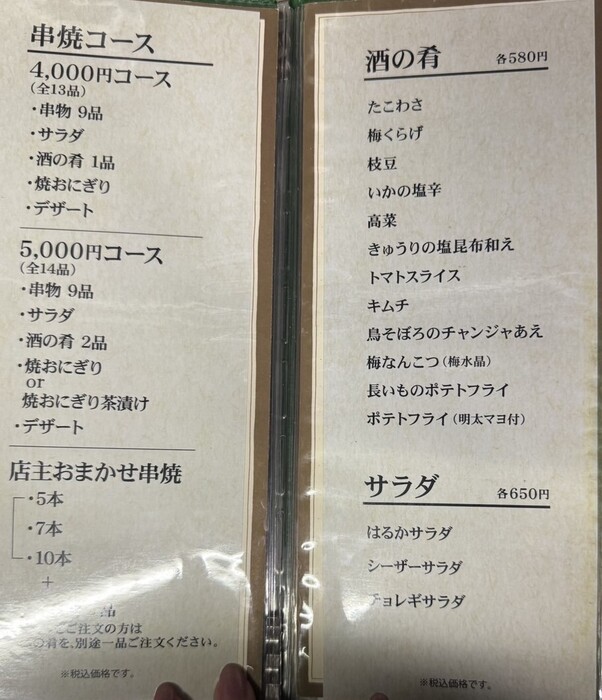 串焼コース
4,000円コース
(全13品)
・串物 9品
・サラダ
・酒の肴 1品
・焼おにぎり
・デザート
5,000円コース
(全14品)
・串物 9品
・サラダ
・酒の肴 2品
・焼おにぎり
or
焼おにぎり茶漬け
・デザート
店主おまかせ串焼
・5本
・7本
・10本
+
品
ご注文の方は
の肴を、別途一品ご注文ください。
※税込価格です。
酒の肴 各580円
たこわさ
梅くらげ
枝豆
いかの塩辛
高菜
きゅうりの塩昆布和え
トマトスライス
キムチ
鳥そぼろのチャンジャあえ
梅なんこつ(梅水晶)
長いものポテトフライ
ポテトフライ(明太マヨ付)
サラダ 各650円
はるかサラダ
シーザーサラダ
チョレギサラダ
※税込価格です。